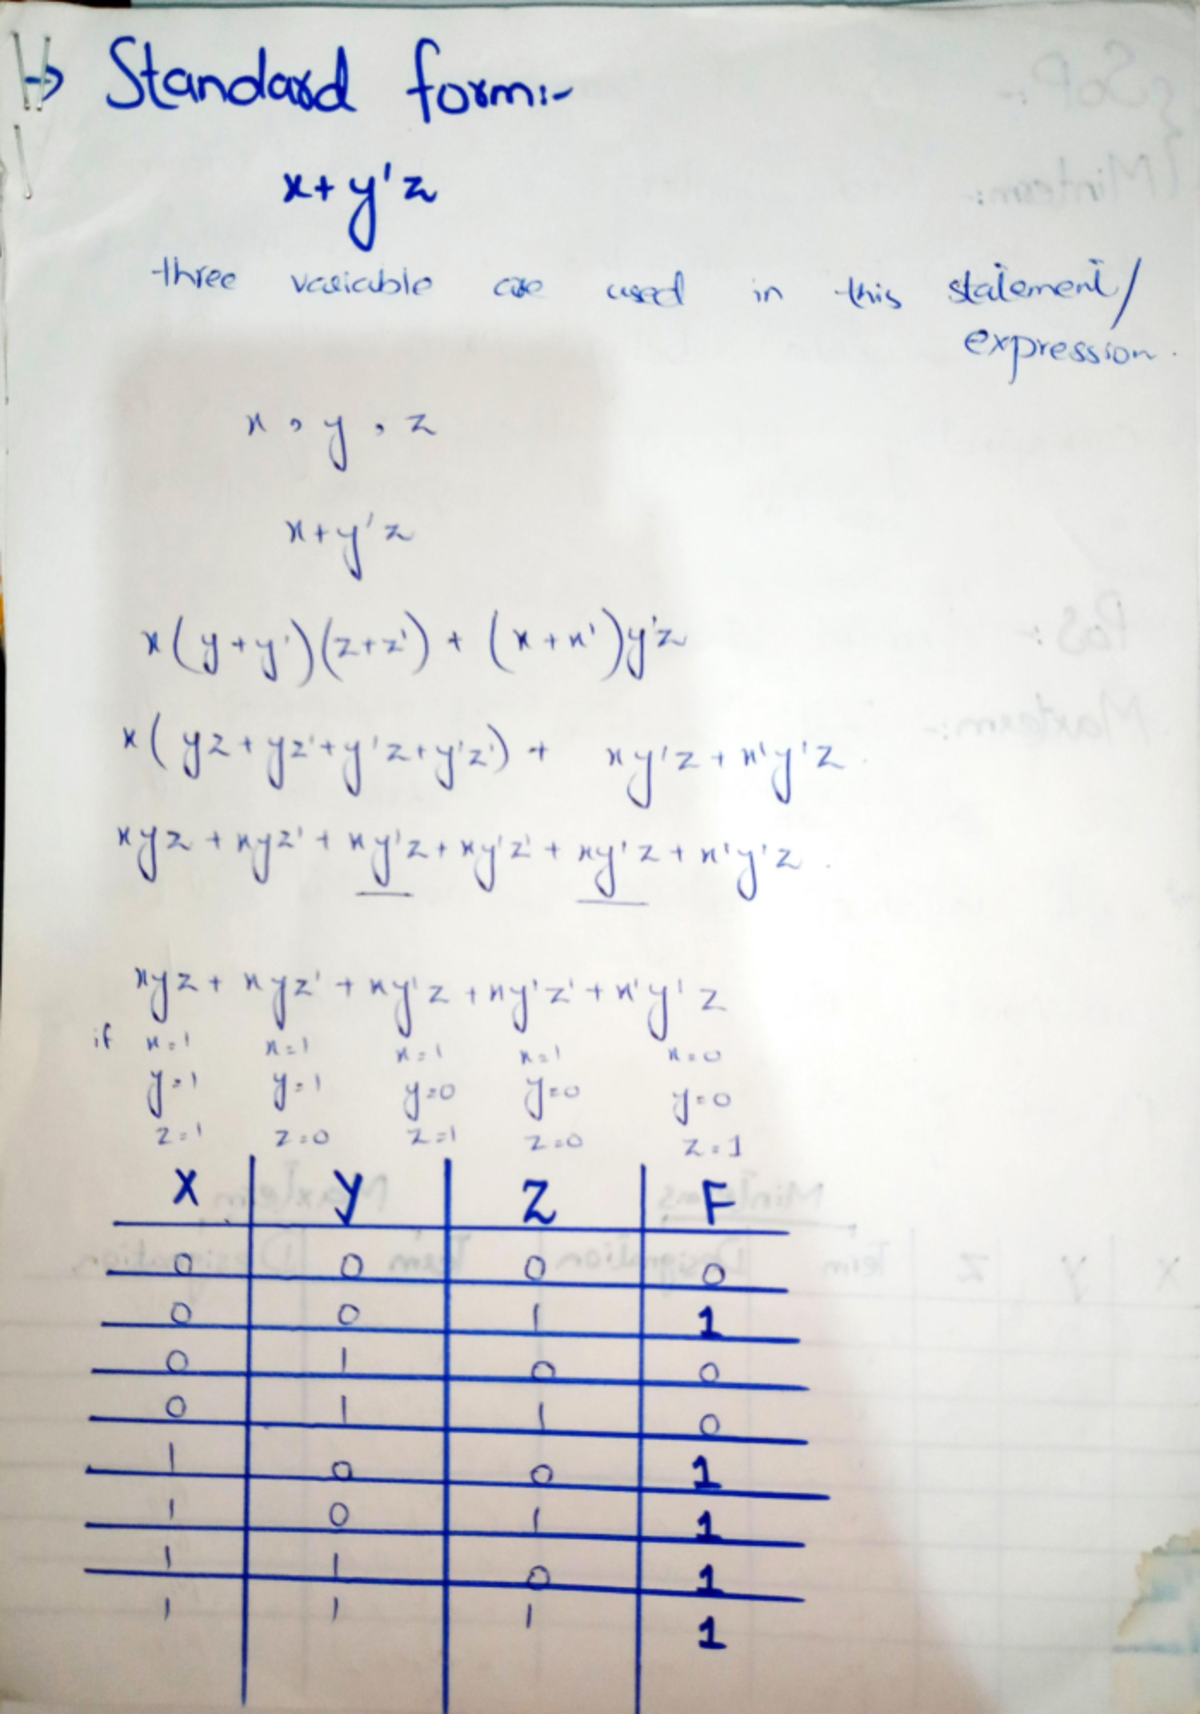 → Standard form:-
x+y'z
three variable are used in this statement/
expression.
x, y, z
x+y'z
x(y+y')(z+z') + (x+x')y'z
x(yz+yz'+y'z+y'z') + xy'z+x'y'z
xyz + xyz' + xy'z + xy'z' + xy'z + x'y'z
xyz + xyz' + xy'z + xy'z' + x'y'z
if x=1 x=1 x=1 x=1 x=0
y=1 y=1 y=0 y=0 y=0
z=1 z=0 z=1 z=0 z=1
X Y Z F
0 0 0 0
0 0 1 1
0 1 0 0
0 1 1 0
1 0 0 1
1 0 1 1
1 1 0 1
1 1 1 1